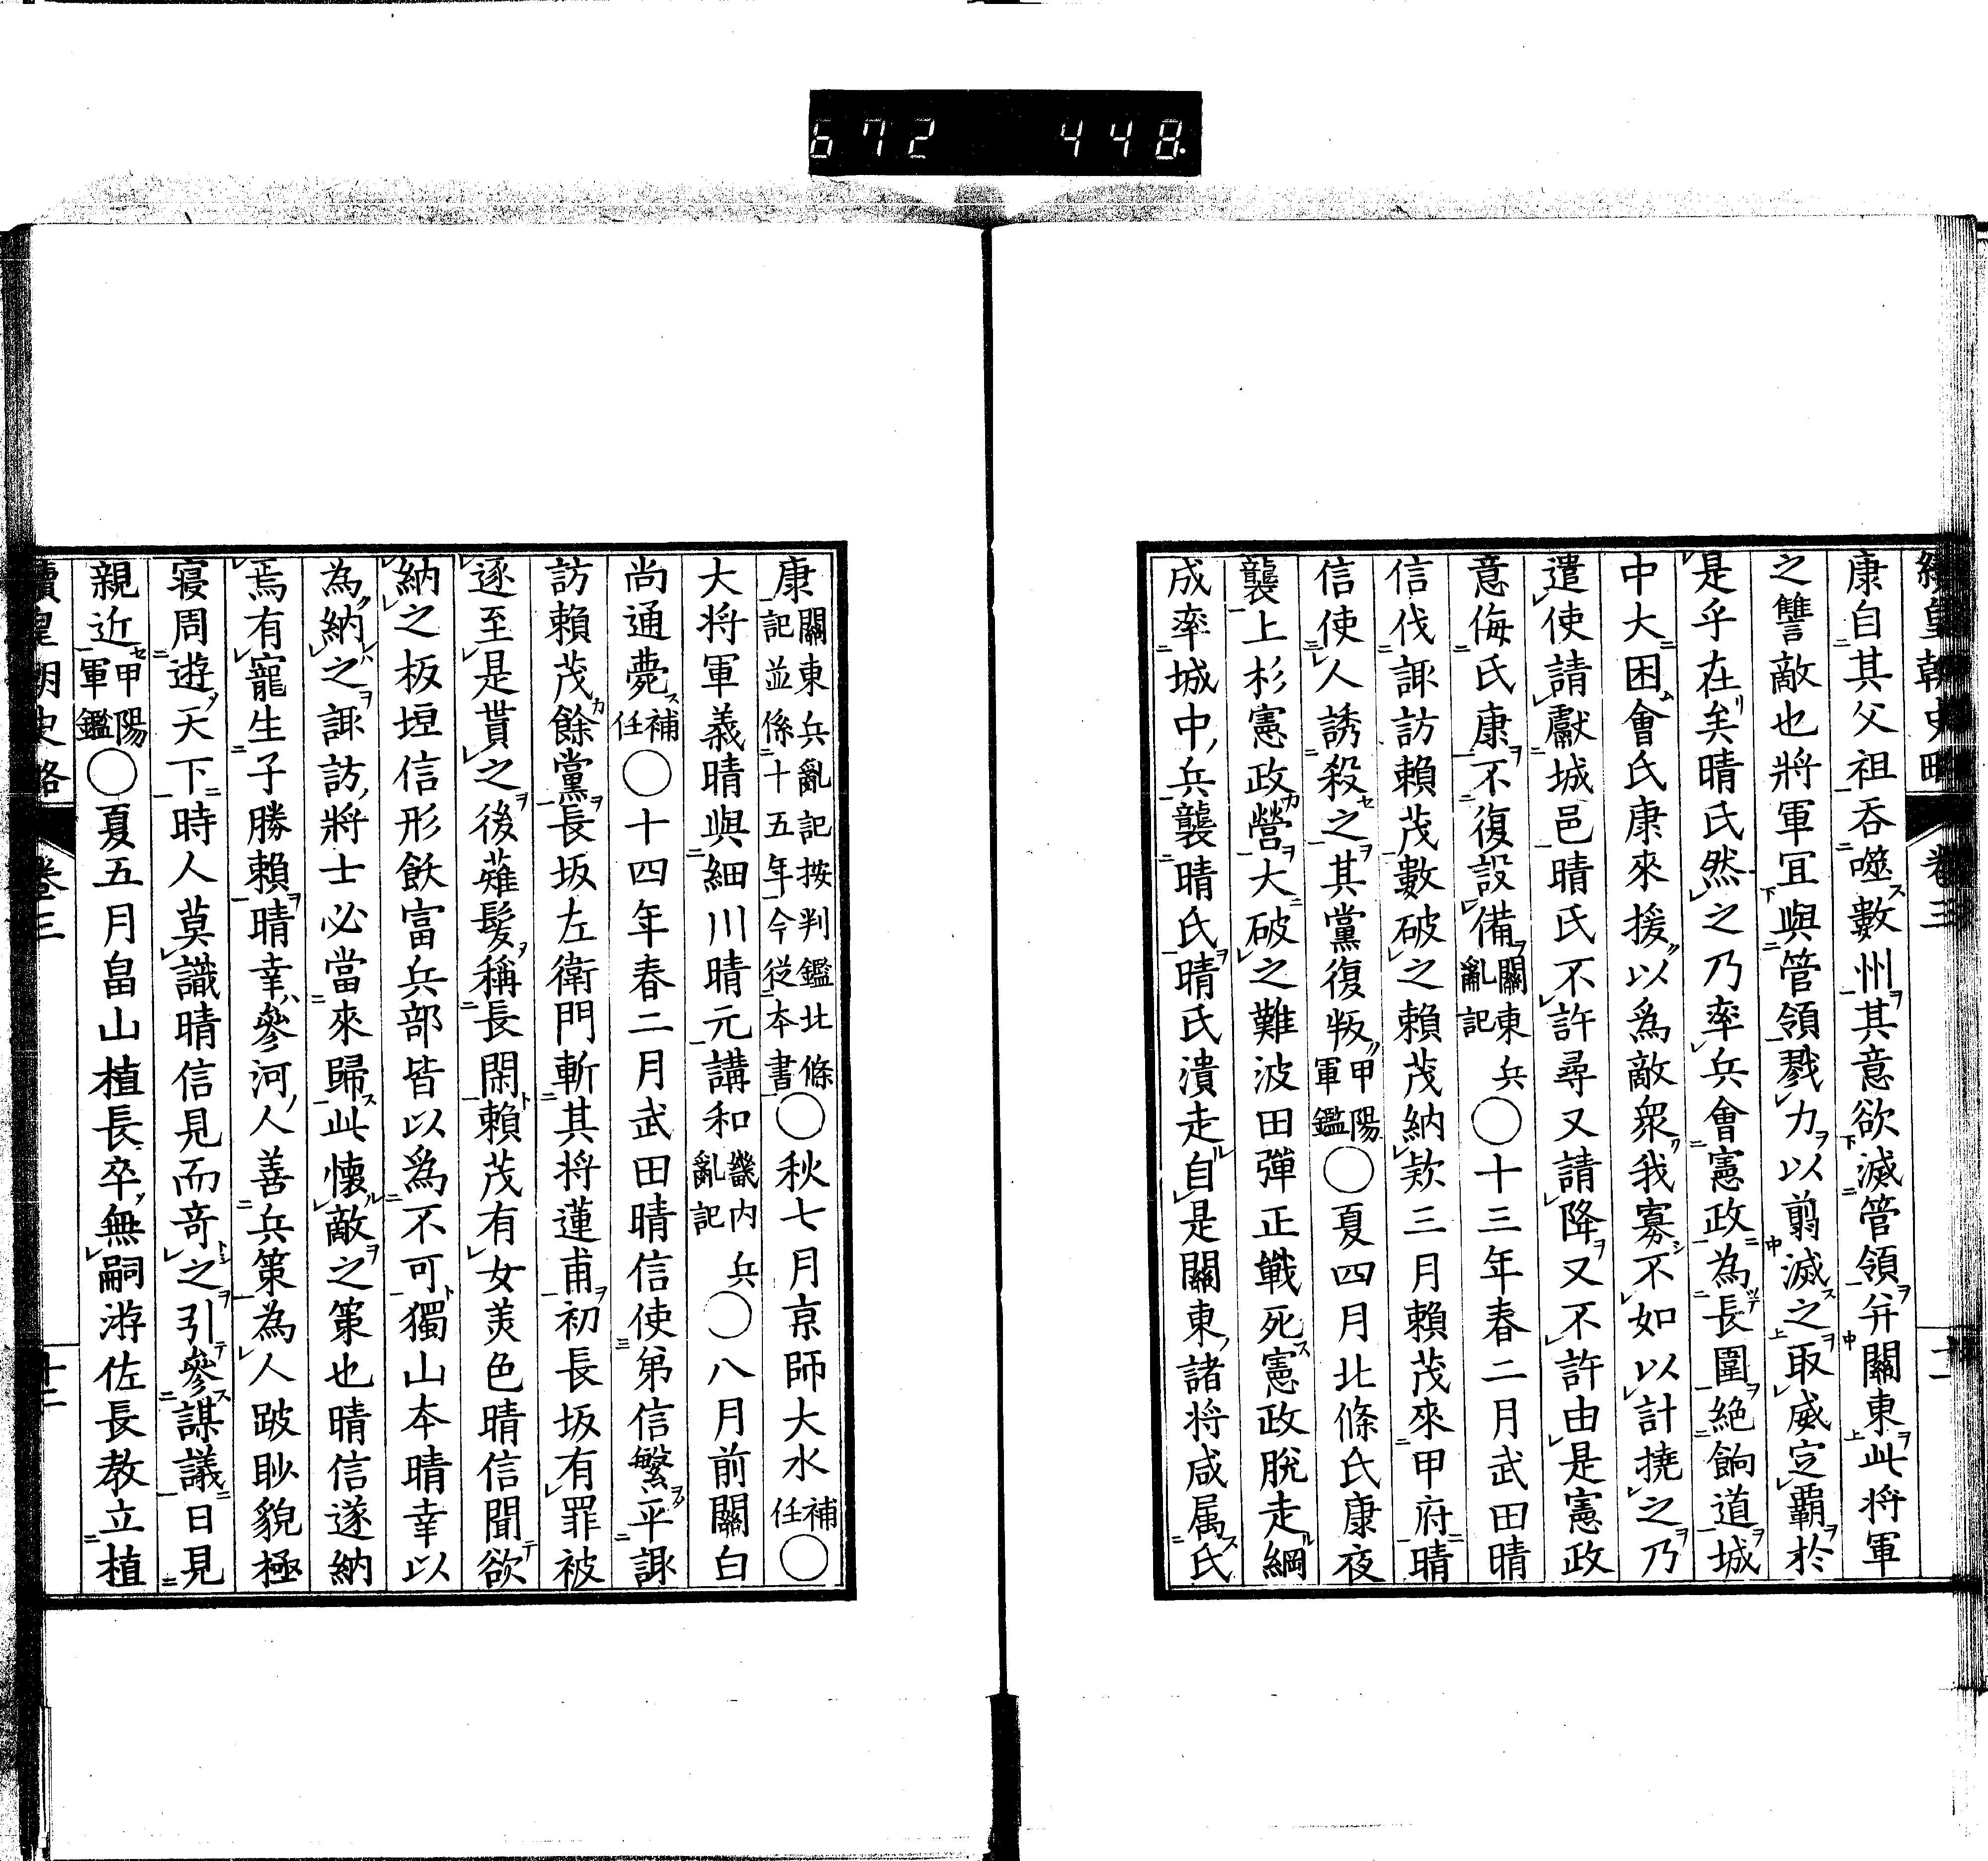 672 448
續皇朝史略 卷三 十二
康自其父祖吞噬數州其意欲滅管領并關東此將軍
之讐敵也將軍宜與管領戮力以翦滅之取威定霸於
是乎在矣晴氏然之乃率兵會憲政為長圍絕餉道城
中大困會氏康來援以爲敵衆我寡不如以計撓之乃
遣使請獻城邑晴氏不許尋又請降又不許由是憲政
意侮氏康不復設備關東兵亂記〇十三年春二月武田晴
信伐諏訪賴茂數破之賴茂納欵三月賴茂來甲府晴
信使人誘殺之其黨復叛甲陽軍鑑〇夏四月北條氏康夜
襲上杉憲政營大破之難波田彈正戰死憲政脫走綱
成率城中兵襲晴氏晴氏潰走自是關東諸将咸属氏
康關東兵亂記按判鑑北條記並係十五年今從本書〇秋七月京師大水補任〇
大将軍義晴與細川晴元講和畿内兵亂記〇八月前關白
尚通薨補任〇十四年春二月武田晴信使弟信繁平諏
訪賴茂餘黨長坂左衛門斬其将蓮甫初長坂有罪被
逐至是貰之後薙髮稱長閑賴茂有女美色晴信聞欲
納之板垣信形飫富兵部皆以爲不可獨山本晴幸以
為納之諏訪將士必當來歸此懷敵之策也晴信遂納
焉有寵生子勝賴晴幸參河人善兵策為人跛眇貌極
寢周遊天下時人莫識晴信見而奇之引參謀議日見
親近甲陽軍鑑〇夏五月畠山植長卒無嗣游佐長教立植
續皇朝史略 卷三 十二